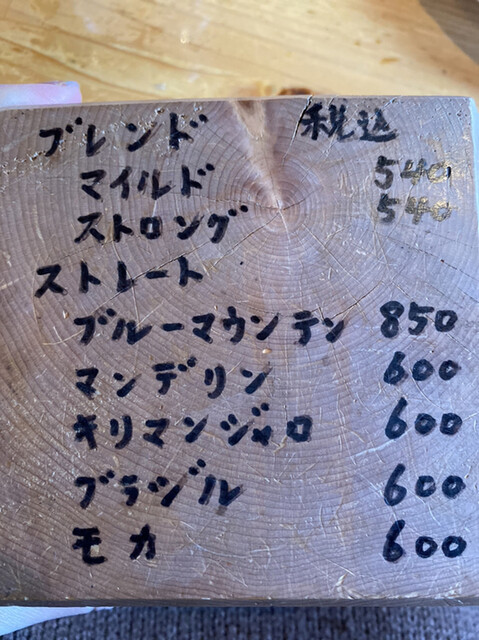 ブレンド 税込
マイルド 540
ストロング 540
ストレート
ブルーマウンテン 850
マンデリン 600
キリマンジャロ 600
ブラジル 600
モカ 600